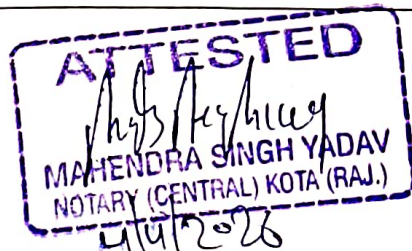 ATTESTED
MAHENDRA SINGH YADAV
NOTARY (CENTRAL) KOTA (RAJ.)
4/4/2026